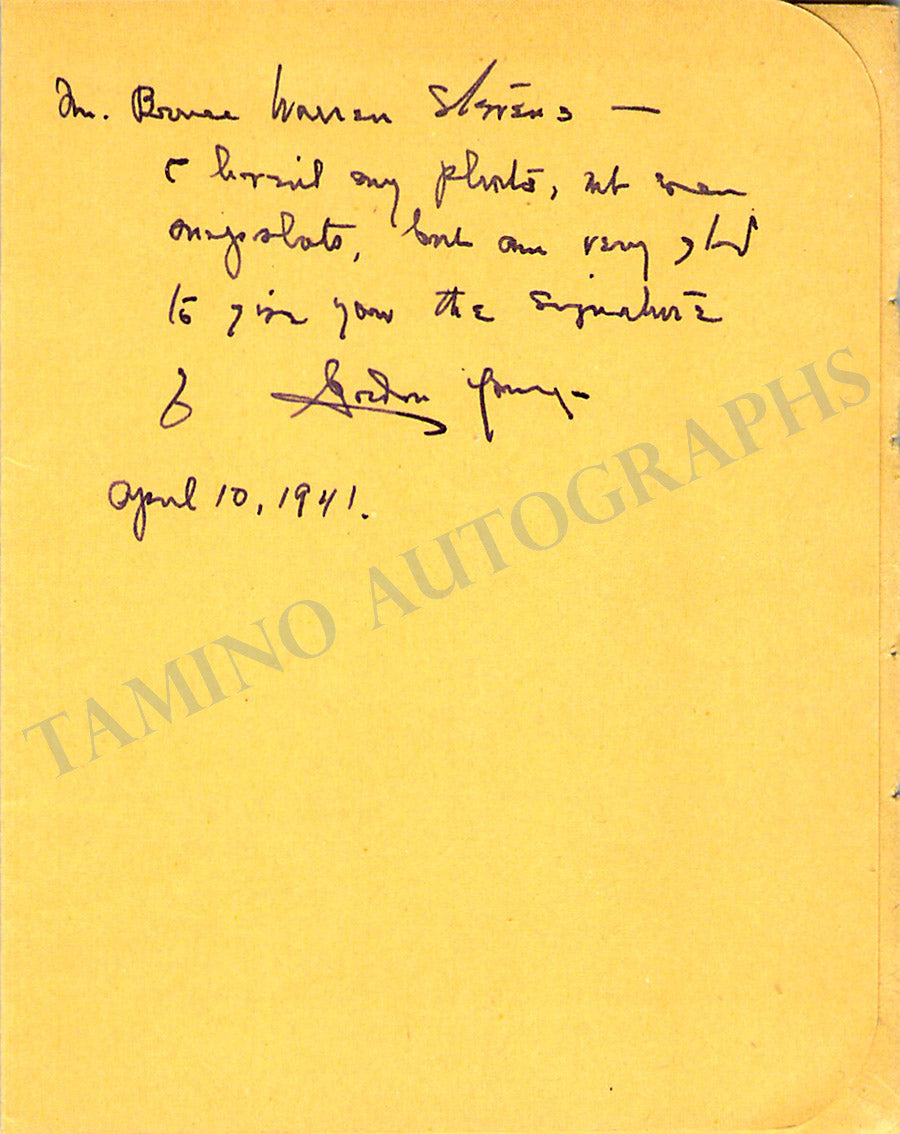 Mr. Bruce Warren Stevens —
I haven't any photos, not even
snapshots, but am very glad
to give you the signature
of Gordon Young
April 10, 1941.
TAMINO AUTOGRAPHS